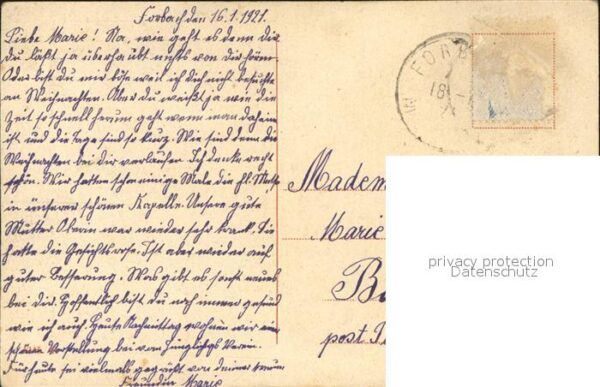 Forbach den 16.1.1921.
Liebe Marie! Na, wie geht es denn dir
du läßt ja überhaubt nichts von dir hören.
Oder bist du mir böse weil ich dich nicht besuchte
an Weihnachten. Aber du weißt ja wie die
Zeit so schnell herum geht wenn man daheim
ist und die Tage sind so kurz. Wie sind denn die
Weihnachten bei dir verlaufen Ich denke recht
schön. Wir hatten schon einige Male die hl. Messe
in unserer schönen Kapelle. Unsere gute
Mutter Oberin war wieder sehr krank. Sie
hatte die Gesichtsrose. Ist aber wieder auf
guter Besserung. Was gibt es sonst neues
bei dir. Hoffentlich bist du noch immer gesund
wie ich auch. Heute Nachmittag wohnen wir einer
schönen Vorstellung bei vom Jünglichgs Verein.
Für heute sei vielmals gegrüßt von deiner treuen
Freundin Marie
FORB
Madem
Marie
post.
privacy protection
Datenschutz